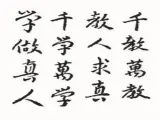 千教萬教
教人求真
千學萬学
学做真人